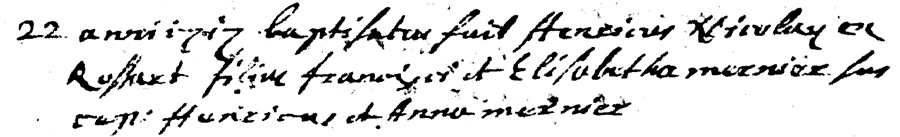 22 anni 1717 baptisatus fuit Henricus Nicolay ex
Rossart filius francisci et Elisabetha mernier sus
cepe: Henricus et Anna mernier